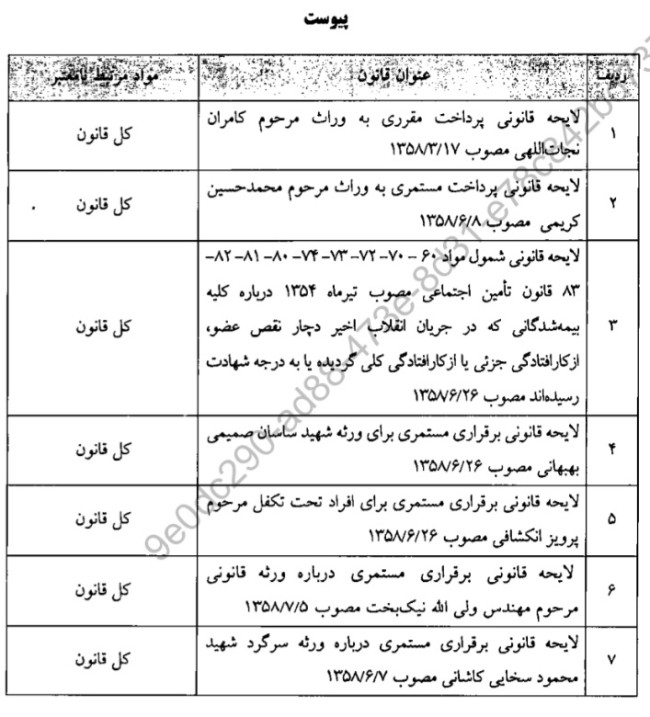 پیوست
ردیف عنوان قانون مواد مرتبط نامعتبر
۱ لایحه قانونی پرداخت مقرری به وراث مرحوم کامران کل قانون
نجات‌اللهی مصوب ۱۳۵۸/۳/۱۷
۲ لایحه قانونی پرداخت مستمری به وراث مرحوم محمدحسین کل قانون
کریمی مصوب ۱۳۵۸/۶/۸
لایحه قانونی شمول مواد ۶۰ – ۷۰ –۷۲ –۷۳ –۷۴ –۸۰ –۸۱ –۸۲–
۸۳ قانون تأمین اجتماعی مصوب تیرماه ۱۳۵۴ درباره کلیه
۳ بیمه‌شدگانی که در جریان انقلاب اخیر دچار نقص عضو، کل قانون
ازکارافتادگی جزئی یا ازکارافتادگی کلی گردیده یا به درجه شهادت
رسیده‌اند مصوب ۱۳۵۸/۶/۲۶
۴ لایحه قانونی برقراری مستمری برای ورثه شهید ساسان صمیمی کل قانون
بهبهانی مصوب ۱۳۵۸/۶/۲۶
۵ لایحه قانونی برقراری مستمری برای افراد تحت تکفل مرحوم کل قانون
پرویز انکشافی مصوب ۱۳۵۸/۶/۲۶
۶ لایحه قانونی برقراری مستمری درباره ورثه قانونی کل قانون
مرحوم مهندس ولی الله نیک‌بخت مصوب ۱۳۵۸/۷/۵
۷ لایحه قانونی برقراری مستمری درباره ورثه سرگرد شهید کل قانون
محمود سخایی کاشانی مصوب ۱۳۵۸/۶/۷